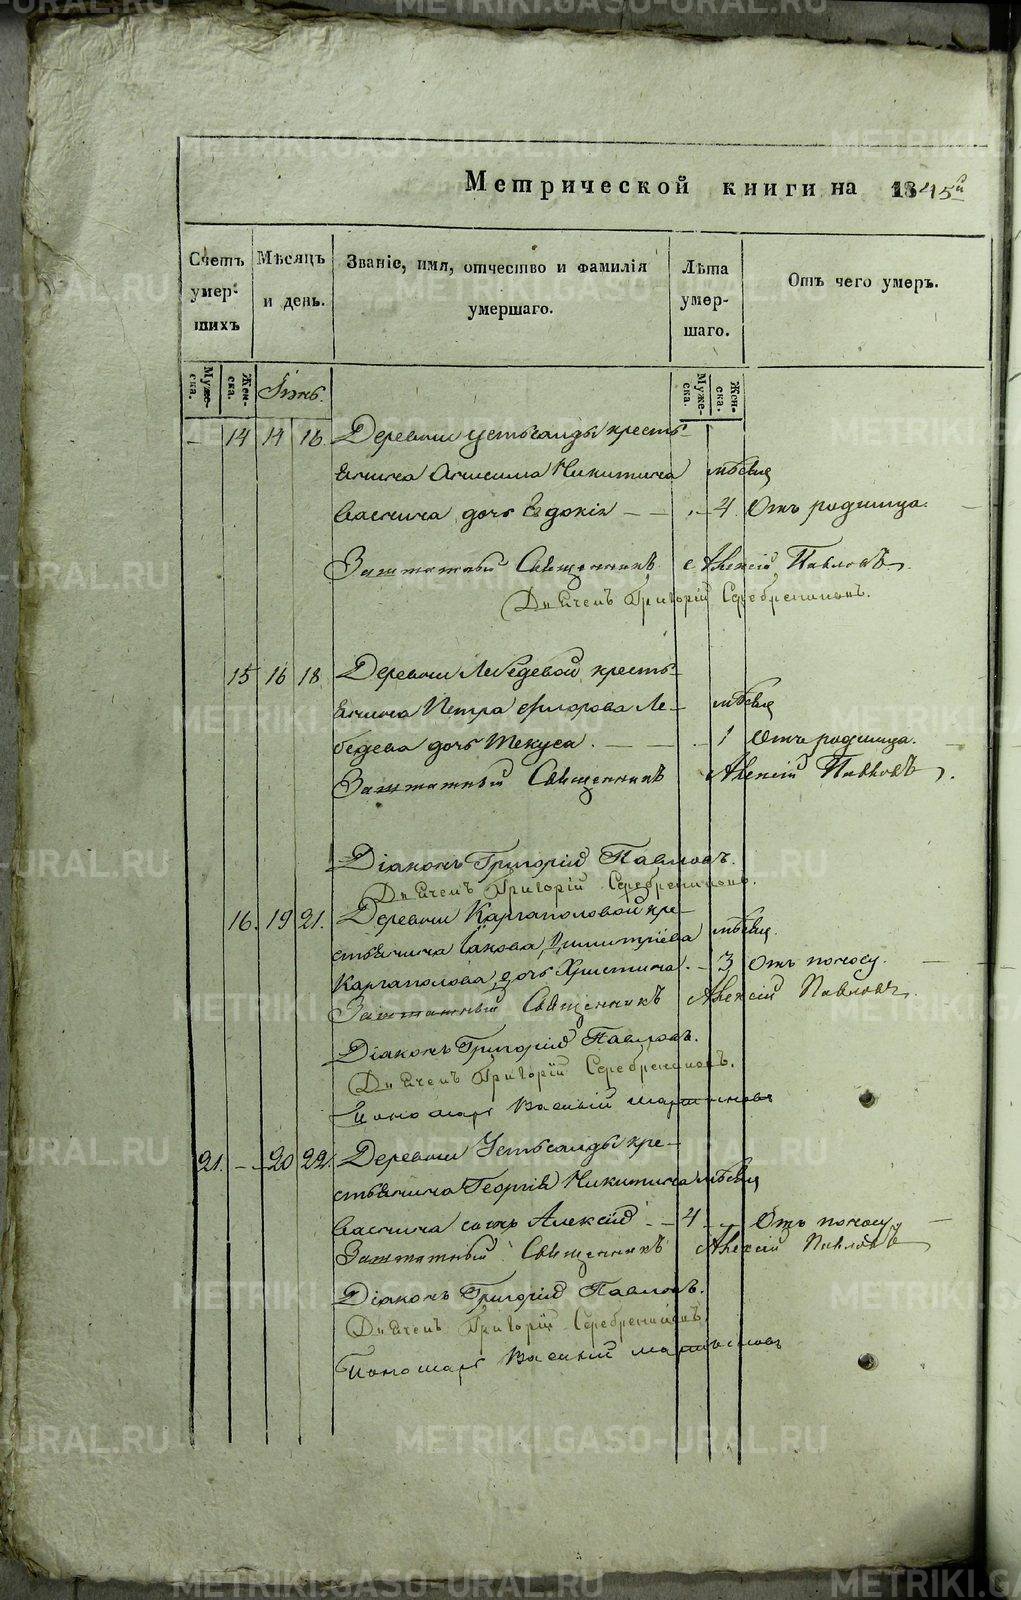 Метрической книги на 1845й
Счетъ умершихъ
Мѣсяцъ и день.
Званіе, имя, отчество и фамилія умершаго.
Лѣта умершаго.
Отъ чего умеръ.
Мужеска. Женска. Іюнь. Мужеска. Женска.
— 14 14 16. Деревни Устьсалды кресть-
янина Анисима Никитина мѣсяц
Васнина дочь Евдокія — — 4 Отъ родимца.
Заштатный Священникъ Алексій Павловъ.
Дьячекъ Григорій Серебрениковъ.
15 16 18 Деревни Лебедевой кресть-
янина Петра Флорова Ле- мѣсяц
бедева дочь Текуса. — — 1 Отъ родимца.
Заштатный Священникъ Алексій Павловъ.
Діаконъ Григорій Павловъ.
Дьячекъ Григорій Серебрениковъ.
16. 19 21. Деревни Каргаполовой кре-
стьянина Іакова Димитріева мѣсяц.
Каргаполова дочь Христина. — 3 Отъ поносу.
Заштатный Священникъ Алексій Павловъ.
Діаконъ Григорій Павловъ.
Дьячекъ Григорій Серебрениковъ.
Пономарь Василій
21. — 20 22. Деревни Устьсалды кре-
стьянина Георгія Никитина мѣсяц
Васнина сынъ Алексій — 4 — Отъ поносу
Заштатный Священникъ Алексій Павловъ
Діаконъ Григорій Павловъ.
Дьячекъ Григорій Серебрениковъ
Пономарь Василій
METRIKI.GASO-URAL.RU